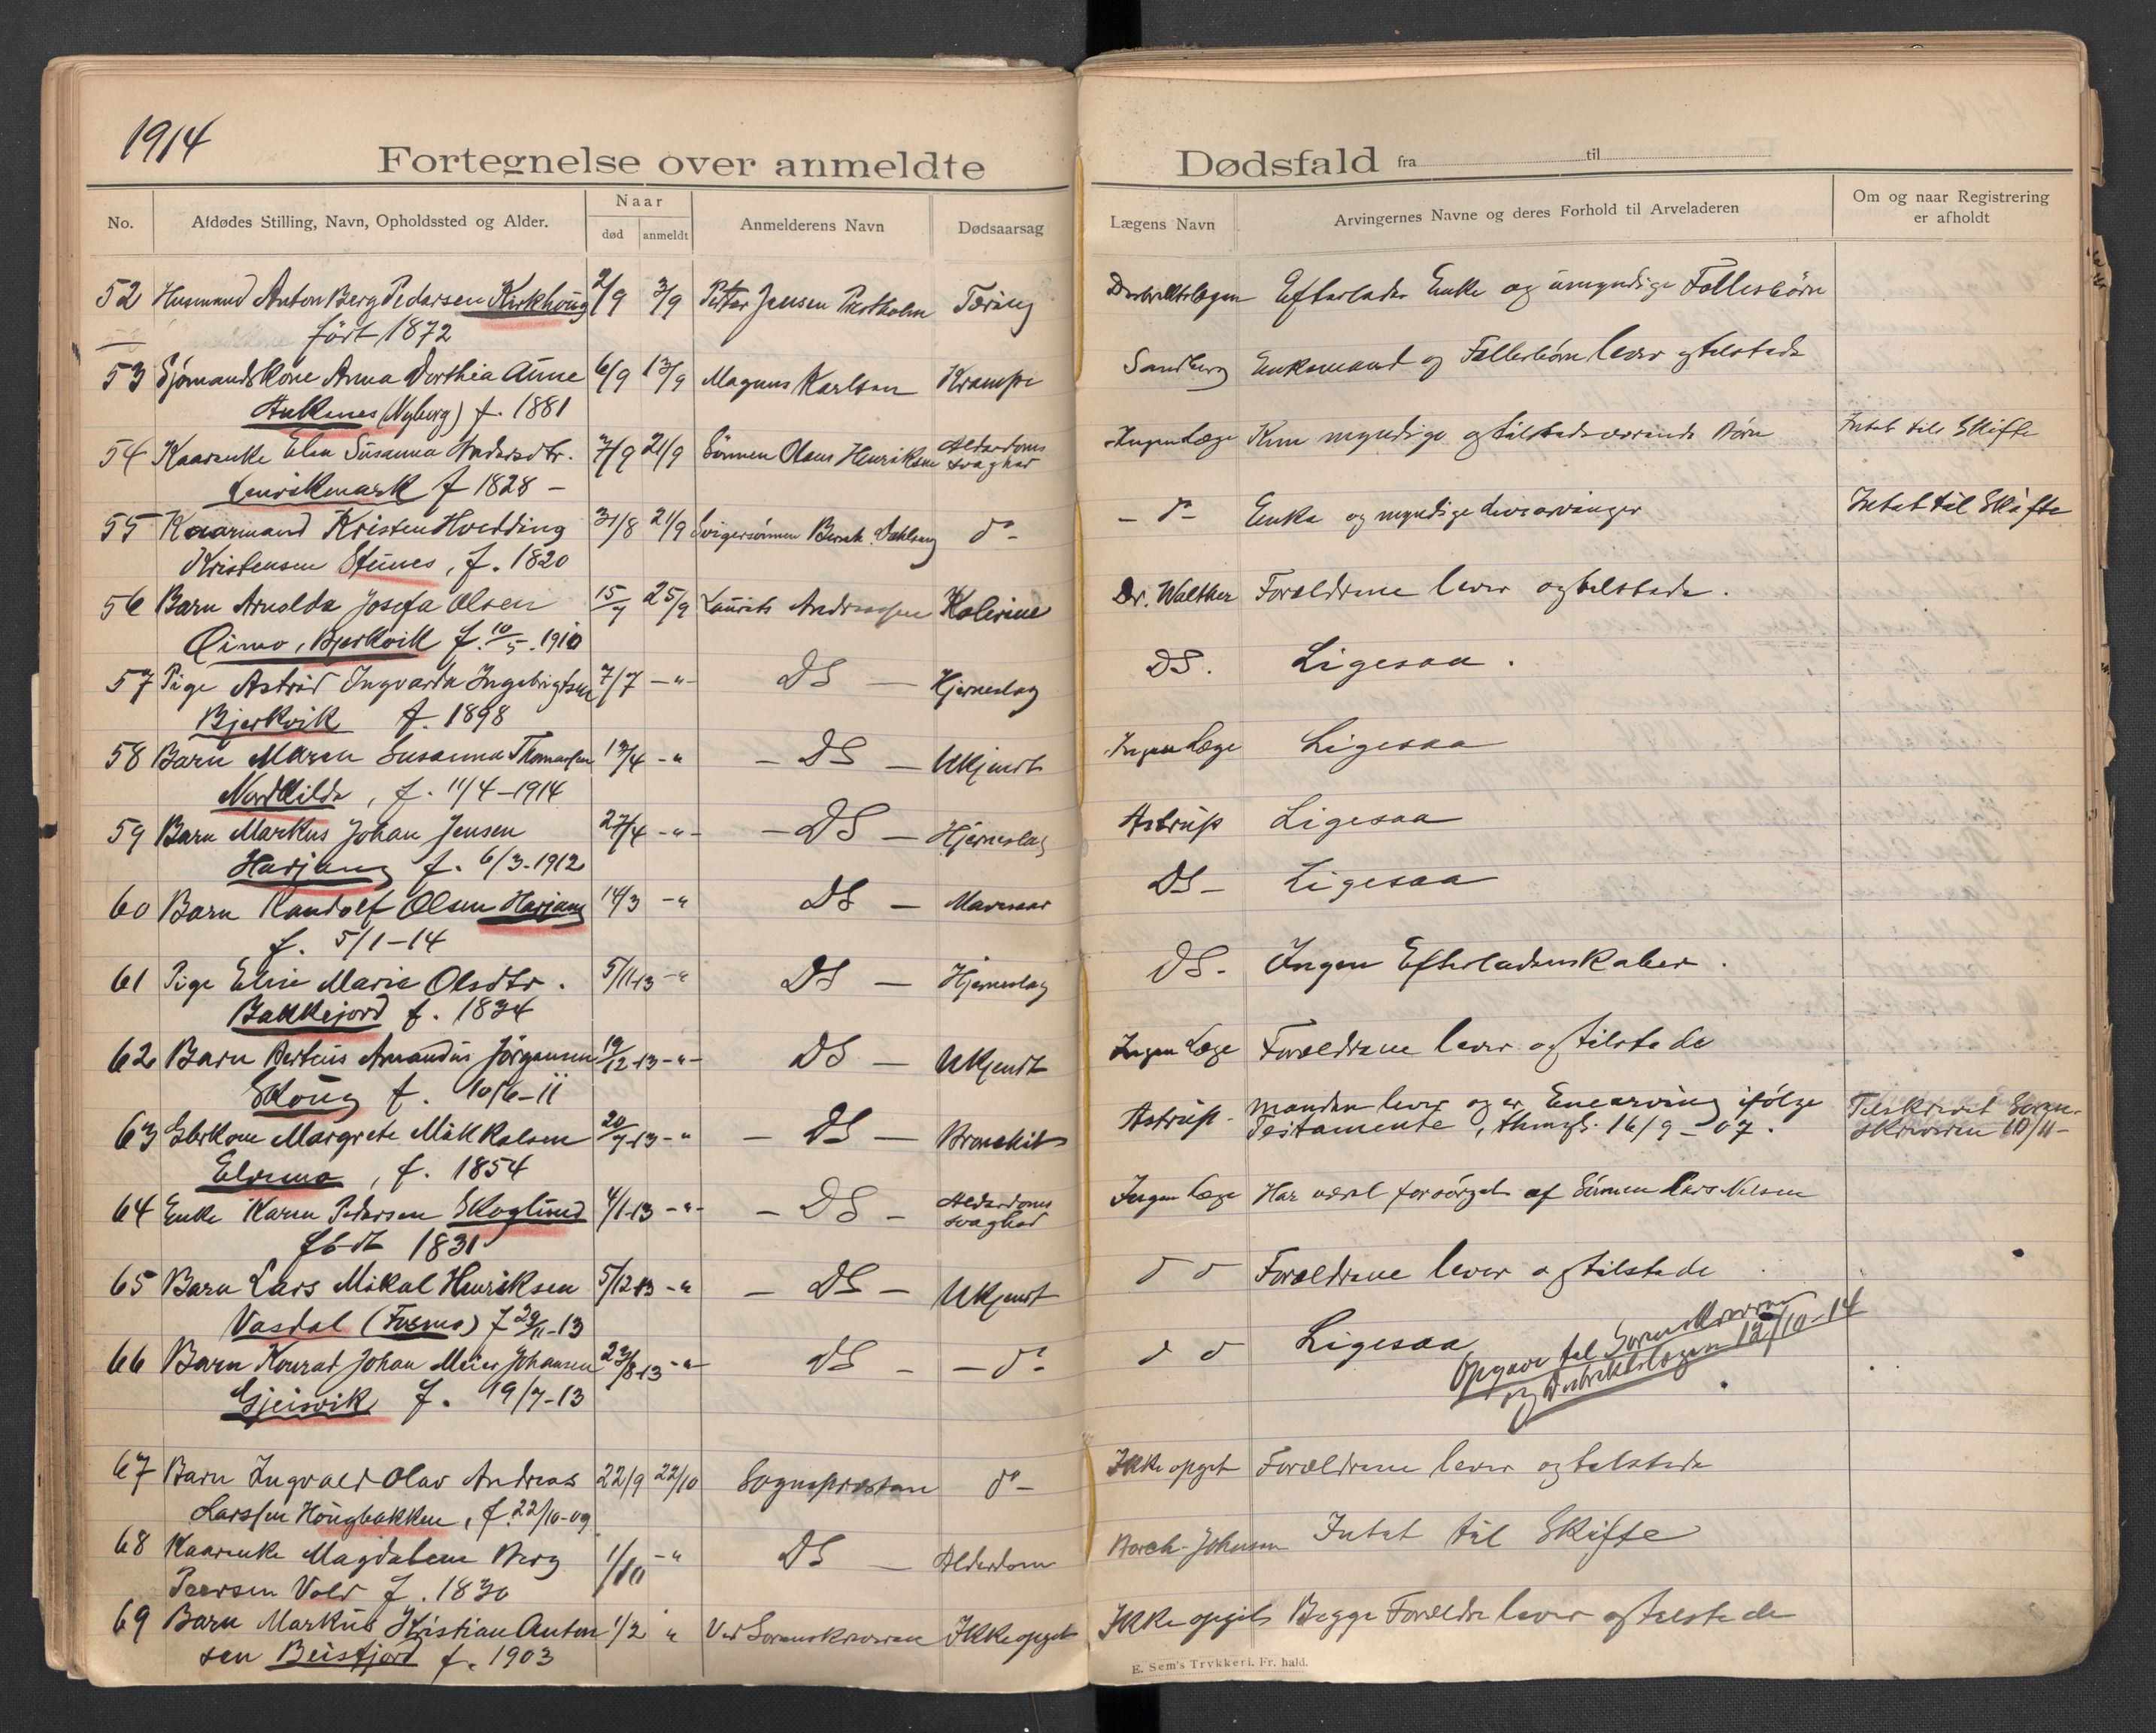 1914
Fortegnelse over anmeldte Dødsfald fra til
No. Afdødes Stilling, Navn, Opholdssted og Alder. Naar død anmeldt Anmelderens Navn Dødsaarsag Lægens Navn Arvingernes Navne og deres Forhold til Arveladeren Om og naar Registrering er afholdt
52 Husmand Anton Berg Pedersen Kirkhoug 2/9 3/9 Petter Jensen Tæring Distriktslægen Efterlader Enke og umyndige Fællesbørn
født 1872
53 Sjømandskone Anna Dorthea Aune 6/9 13/9 Magnus Karlsen Krampe Sandberg Enkemand og Fællesbørn lever og tilstede
Ankenes (Nyborg) f. 1881
54 Kaarenke Elen Susanna Andersdtr. 7/9 21/9 Sønnen Olaus Henriksen Alderdoms svaghed Ingen Læge Kun myndige og tilstedeværende Børn Intet till Skifte
f 1828 -
55 Kaarmand Kristen Hvedding 31/8 21/9 Svigersønnen Dahlberg do - - do - Enke og myndige Livsarvinger Intet til Skifte
Kristensen f. 1820
56 Barn Arnolda Josefa Olsen 15/9 25/9 Laurits Andreassen Kolerine Dr. Walther Forældrene lever og tilstede.
Øimo, Bjerkvik f. 10/5-1910
57 Pige Astrid Ingvarda Ingebrigtsen 7/7 -"- DS - Hjerneslag DS. Ligesaa.
Bjerkvik f. 1898
58 Barn Maren Susanna Thomassen 13/4 -" - DS - Ukjendt Ingen Læge Ligesaa
Nordkilde, f. 11/4-1914
59 Barn Markus Johan Jensen 27/4 -"- - DS - Hjerneslag Astrup Ligesaa
Harjang f. 6/3-1912
60 Barn Randolf Olsen Harjang 14/3 -" DS - DS - Ligesaa
f. 5/1-14
61 Pige Elen Marie Olsdtr. 5/11-13 -" DS - Hjerneslag DS - Ingen Efterladenskaber.
Bakkejord f. 1834
62 Barn Berteus Amandus Jørgensen 19/12-13 -"- DS - Ukjendt Ingen Læge Forældrene lever og tilstede
Skoug f. 10/6-11
63 Margrete Mikkelsen 20/7-13 -" - DS - Bronkit Astrup - Manden lever og er Enearving ifølge Testamente, thingl. 16/9-07. Tilskrevet Soren-skriveren 10/11-
Elvemo, f. 1854
64 Enke Karen Pedersen Skoglund 4/1-13 -"- - DS - Alderdoms svaghed Ingen Læge Har været forsørget af Sønnen Lars Nilsen
født 1831
65 Barn Lars Mikal Henriksen 5/12-13 -" - DS - Ukjendt do Forældrene lever og tilstede
Vasdal (Fosmo) f 29/11-13
66 Barn Konrad Johan Meier Johansen 23/8-13 -"- DS - - do - do Ligesaa
Gjeisvik f. 19/7-13
Opgave til Sorenskriveren
og Distriktslægen 12/10-14
67 Barn Ingvald Olav Andreas 22/9 22/10 Sognepræsten do - Ikke opget Forældrene lever og tilstede
Larssen Hougbakken, f. 22/10-09
68 Kaarenke Magdalene Berg 1/10 -" DS - Alderdom Borch-Johnsen Intet til Skifte
Peersen Vold f. 1830
69 Barn Markus Kristian Anton 1/2 " Ved Sorenskriveren Ikke opget Ikke opgit Begge Forældre lever og tilstede
sen Beisfjord f. 1903
E. Sem's Trykkeri. Fr. hald.